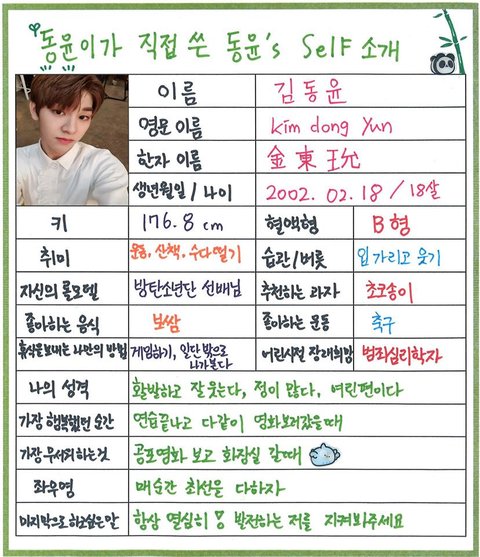 동윤이가 직접 쓴 동윤's Self 소개
이름 김동윤
영문 이름 Kim dong Yun
한자 이름 金 東 玧
생년월일 / 나이 2002. 02. 18 / 18살
키 176.8 cm 혈액형 B형
취미 운동, 산책, 수다떨기 습관/버릇 입 가리고 웃기
자신의 롤모델 방탄소년단 선배님 추천하는 과자 초코송이
좋아하는 음식 보쌈 좋아하는 운동 축구
휴식을 보내는 나만의 방법 게임하기, 일단 밖으로 나가본다 어린시절 장래희망 범죄심리학자
나의 성격 활발하고 잘 웃는다, 정이 많다, 여린편이다
가장 행복했던 순간 연습끝나고 다같이 영화보러갔을때
가장 무서워하는것 공포영화 보고 화장실 갈때
좌우명 매순간 최선을 다하자
마지막으로 하고싶은말 항상 열심히 발전하는 저를 지켜봐주세요